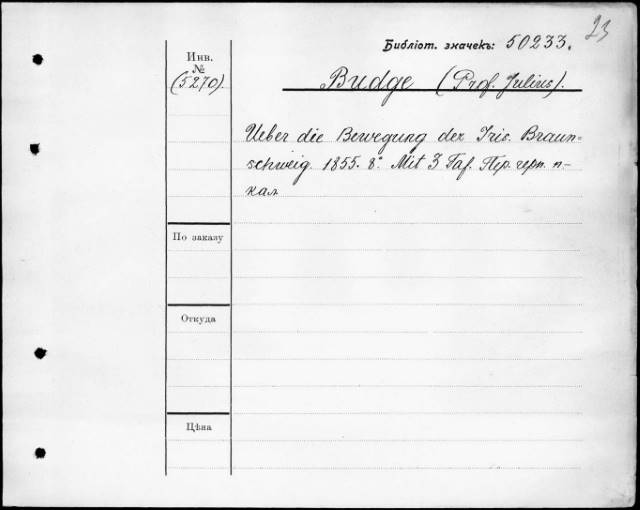 23
Библіот. значекъ: 50233.
Инв.
№
(5270).
Budge (Prof. Julius).
Ueber die Bewegung der Iris. Braun=
schweig. 1855. 8°. Mit 3 Taf. Пер. черн. п-
кал.
По заказу
Откуда
Цѣна